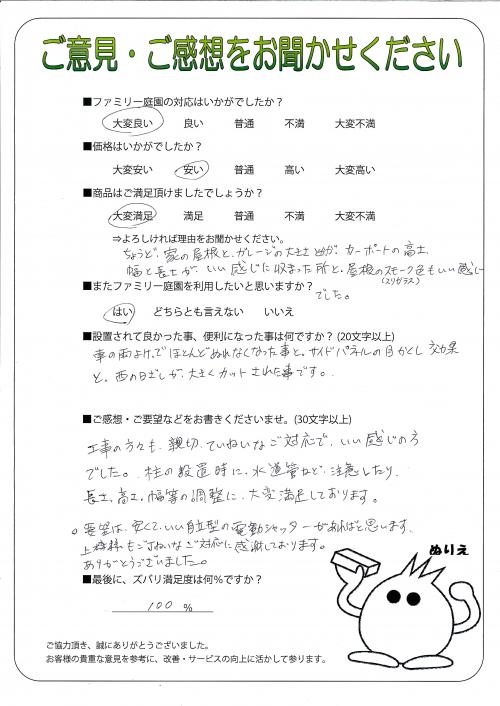 ご意見・ご感想をお聞かせください
■ファミリー庭園の対応はいかがでしたか？
大変良い 良い 普通 不満 大変不満
■価格はいかがでしたか？
大変安い 安い 普通 高い 大変高い
■商品はご満足頂けましたでしょうか？
大変満足 満足 普通 不満 大変不満
⇒よろしければ理由をお聞かせください。
ちょうど、家の屋根と、ガレージの大きさとかが、カーポートの高さ、
幅と長さが、いい感じに収まった所と、屋根のスモーク色もいい感じ
(スリガラス)
でした。
■またファミリー庭園を利用したいと思いますか？
はい どちらとも言えない いいえ
■設置されて良かった事、便利になった事は何ですか？(20文字以上)
車の雨よけでほとんどぬれなくなった事と、サイドパネルの目かくし効果
と、西の日ざしが、大きくカットされた事です。
■ご感想・ご要望などをお書きくださいませ。(30文字以上)
工事の方々も、親切、ていねいなご対応で、いい感じの方
でした。柱の設置時に、水道管など、注意したり、
長さ、高さ、幅等の調整に、大変満足しております。
。要望は、安くて、いい自立型の電動シャッターがあればと思います。
上様もごていねいなご対応に感謝しております。
ありがとうございました。
ぬりえ
■最後に、ズバリ満足度は何％ですか？
100 ％
ご協力頂き、誠にありがとうございました。
お客様の貴重な意見を参考に、改善・サービスの向上に活かして参ります。